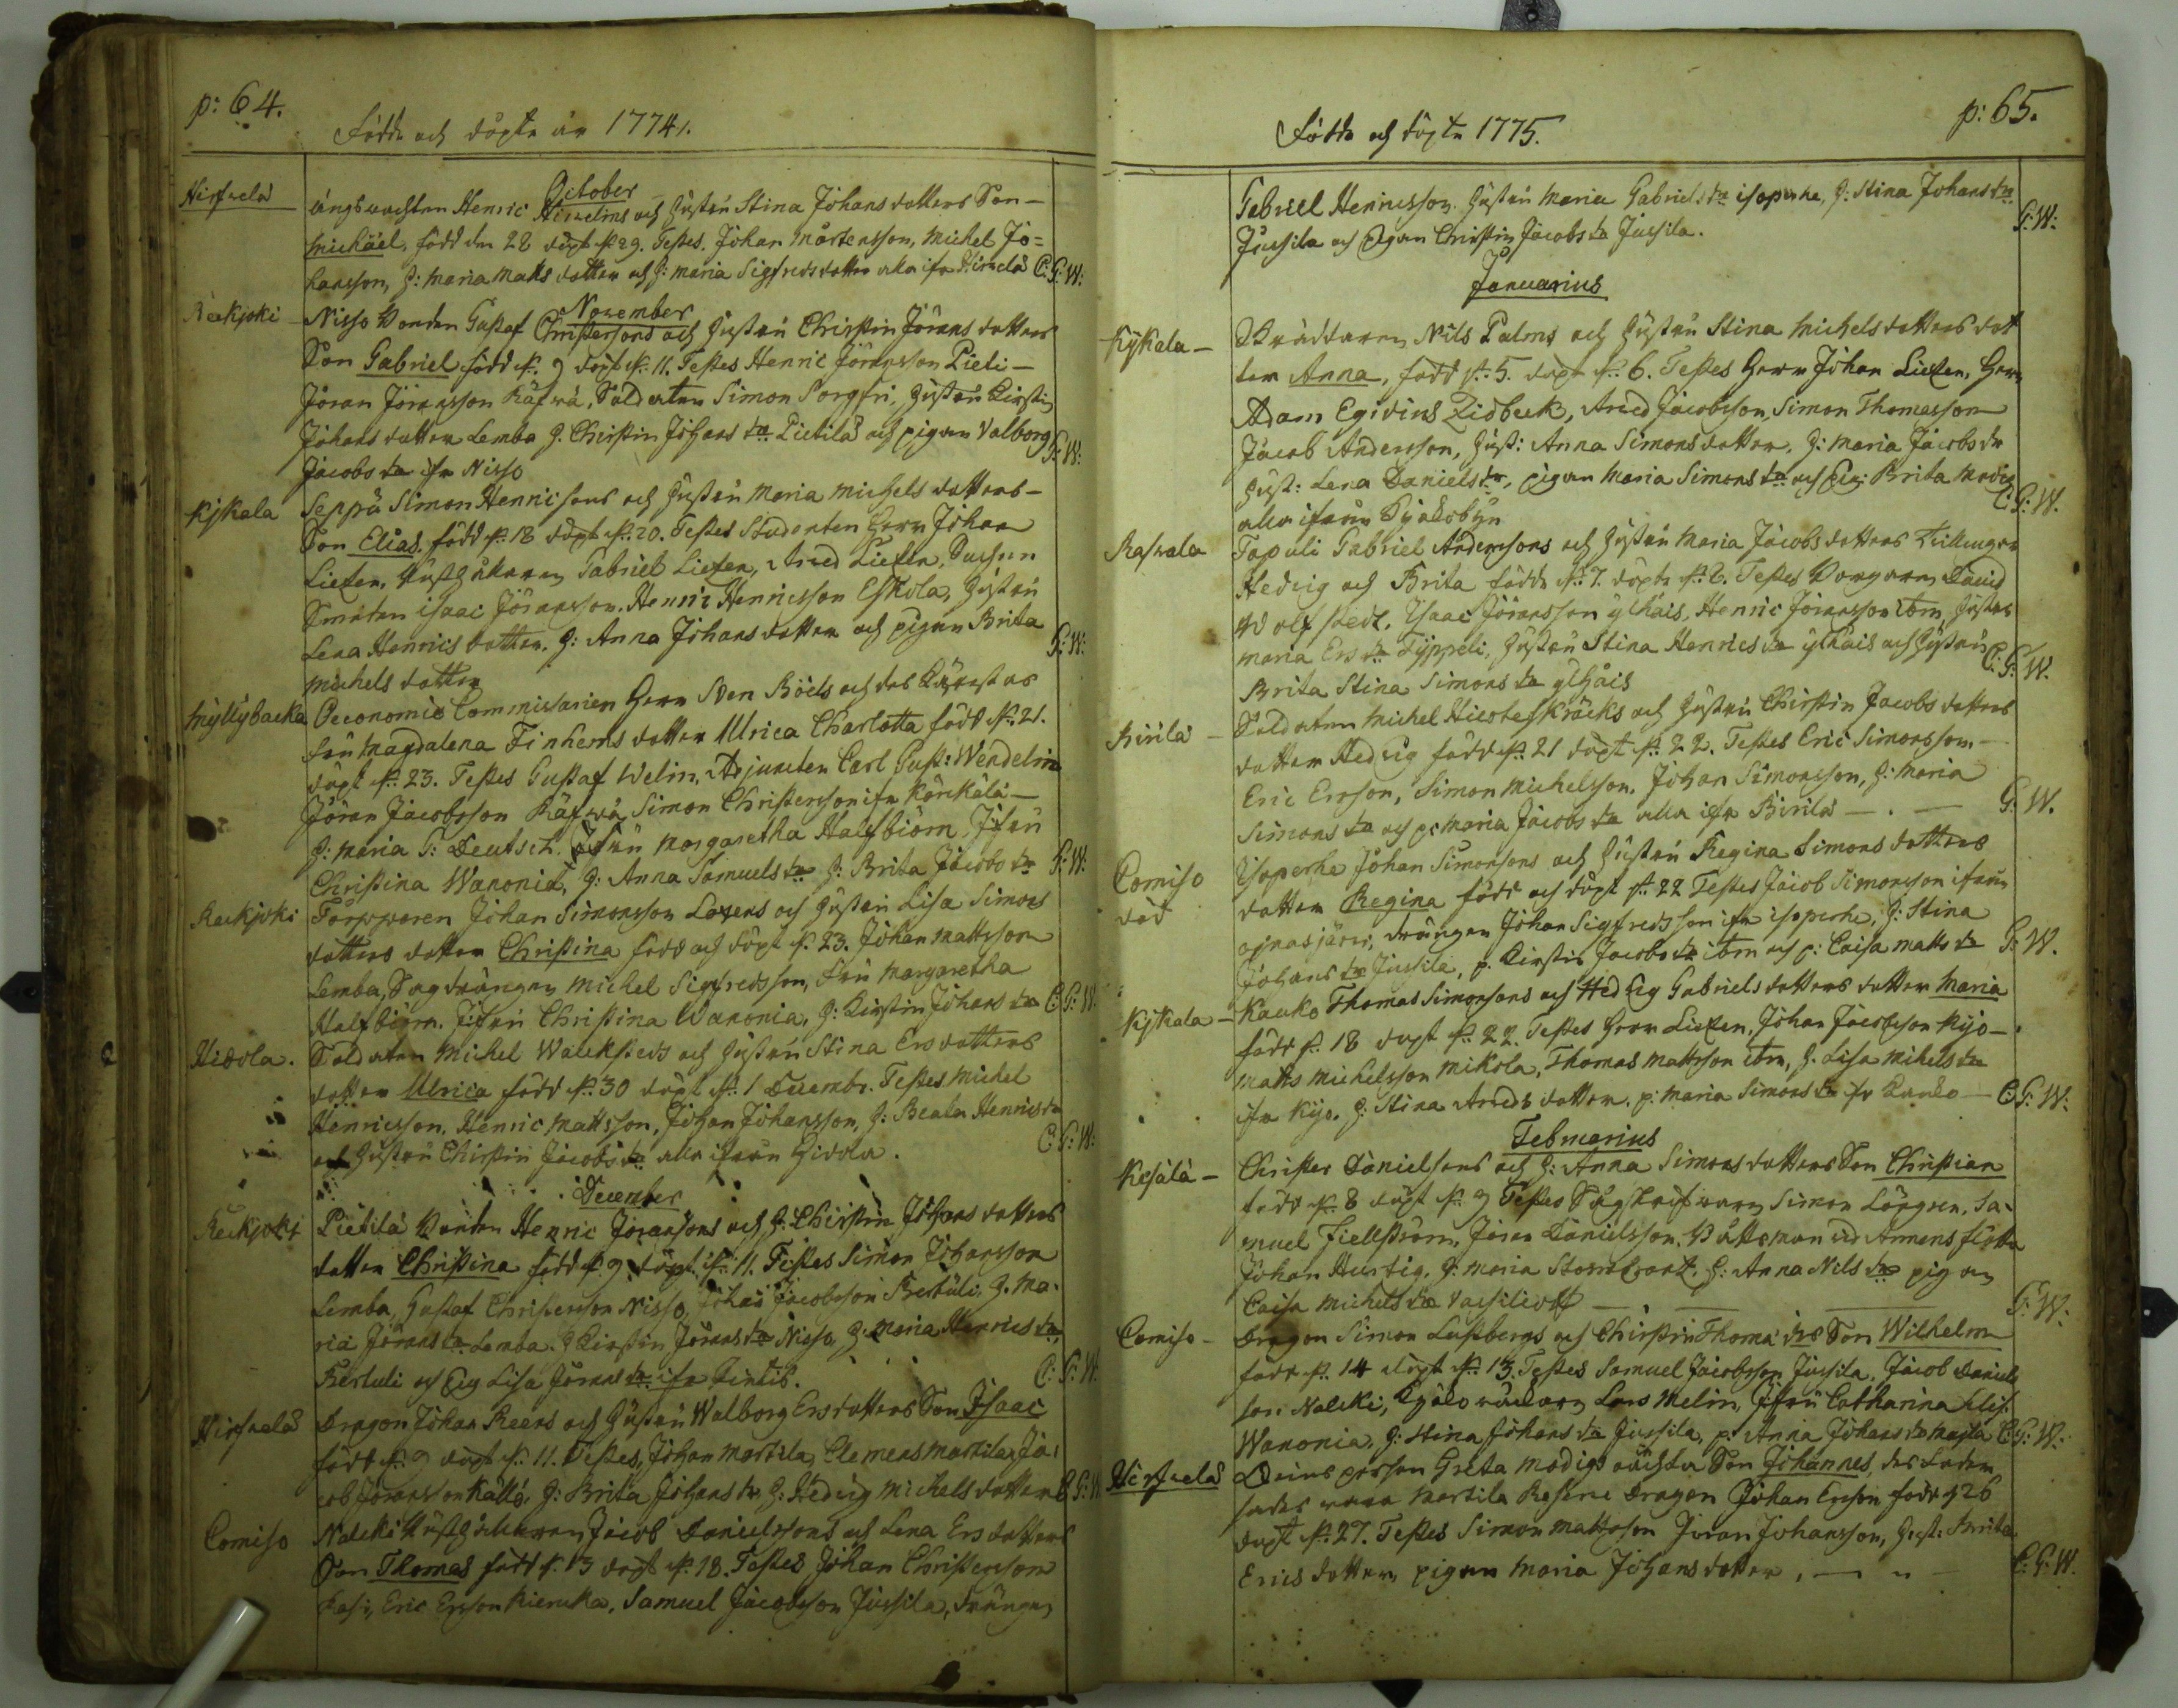 p: 64.
Födde och döpte år 1774.
October
Hirfvelä ängsvachten Henric Hirvelins och hustru Stina Johans dotters Son
Michäel, född den 28 döpt d: 29. Testes. Johan Mårtensson, Michel Jo=
hansson, h: Maria Matts dotter och h: Maria Sigfreds dotter alla ifr Hirvelä C: G: W:
November
Räekjoki Nisso Bonden Gustaf Christersons och hustru Christin Jörans dotters
Son Gabriel född d. 9 döpt d. 11. Testes Henric Jöransson Pieti-
Jöran Jöransson Räfvä, Soldaten Simon Sorgfri, hustru Kirstin
Johans dotter Lemba h. Christin Johans dr Pietilä och pigan Valborg
Jacobs dr ifr Nisso G: W:
Kykala Seppä Simon Henricsons och hustru Maria Michels dotters
Son Elias, född d. 18 döpt d. 20. Testes Studenten Herr Johan
Lieten, Gabriel Lieten, Arved Lieten,
Isaac Jöransson. Henric Henricsson Eskola, hustru
Lena Henrics dotter. h: Anna Johans dotter och pigan Brita
Michels dotter G: W:
Myllybacka Oeconomie Commissarien Herr Sven Böels och des Käresta
fru Magdalena Finherns dotter Ulrica Charlotta född d. 21.
döpt d. 23. Testes Gustaf Welin, Adjuncten Carl Gust: Wendelin
Jöran Jacobsson Räfvä, Simon Christersson ifr Kärkälä
h: Maria S: Deutsch. Jfru Margaretha Halfbiörn, Jfru
Christina Wanonia, h: Anna Samuels dr h: Brita Jacobs dr G: W:
Raekjoki Torpparen Johan Simonsson Lovens och hustru Lisa Simons
dotters dotter Christina född och döpt d. 23. Johan Mattsson
Lemba, Sagdrängen Michel Sigfredsson, fru Margaretha
Halfbiörn. Jfru Christina Wanonia, h: Kirstin Johans dr C: G: W:
Hidola. Soldaten Michel Wacksteds och hustru Stina Ers dotters
dotter Ulrica född d. 30 döpt d. 1 Decembr. Testes Michel
Henricsson, Henric Mattsson, Johan Johansson, h: Beata Henrics dr
och hustru Christin Jacobs dr alla ifrån Hidola. C: G: W:
December
Räekjoki Pietilä Bonden Henric Jöransons och h: Christin Johans dotters
dotter Christina född d. 9 döpt d. 11. Testes Simon Johansson
Lemba, Gustaf Christersson Nisso, Johan Jacobsson Bertuli, h. Ma-
ria Jörans dr Lemba. h Kirstin Jörans dr Nisso, h: Maria Henrics dr
Bertuli och Pig Lisa Jörans dr ifr C: G: W.
Hirfvelä Dragon Johan Reens och hustru Walborg Ers dotters Son Isaac
född d. 9 döpt d. 11. Testes, Johan Martila, Clemens Martila, Ja-
cob Jöransson Källö, h: Brita Johans dr h: Hedvig Michels dotter C: G: W
Comiso Nalcki Rusthållaren Jacob Danielssons och Lena Ers dotters
Son Thomas född d. 13 döpt d. 18. Testes Johan Christersson
Pasi, Eric Ersson Kieruka, Samuel Jacobsson Jussila, drängen
p: 65.
Födde och döpte 1775.
Gabriel Henricsson. hustru Maria Gabriels dr Isoperhe, h: Stina Johans dr
Jussila och Pigan Christin Jacobs dr Jussila. G: W:
Januarius
Kykala Nils Palms och hustru Stina Michels dotters dot
ter Anna, född d. 5. döpt d. 6. Testes Herr Johan Lieten, Herr
Adam Egidius Zidbeck, Arved Jacobsson, Simon Thomasson
Jacob Andersson, hust: Anna Simons dotter, h: Maria Jacobs dr
hust: Lena Daniels dr, pigan Maria Simons dr och Pig: Brita Modig
alla ifrån Pyäkobyn C: G: W.
Rasvala Tapuli Gabriel Andersons och hustru Maria Jacobs dotters Tvillingar
Hedvig och Brita födde d. 7. döpte d. 8. Testes Borgaren David
Wolfstedt. Isaac Jöransson ylhäis, Henric Jöransson ibm, hustru
Maria Ers dr Typpeli, hustru Stina Henrics dr ylhäis och hustru
Brita Stina Simons dr ylhäis C: G: W.
Kirilä Soldaten Michel Kräcks och hustru Christin Jacobs dotters
dotter Hedvig född d. 21 döpt d. 22. Testes Eric Simonsson
Eric Ersson, Simon Michelsson. Johan Simonsson, h: Maria
Simons dr och p: Maria Jacobs dr alla ifr Kirilä G: W.
Comiso
död Isoperhe Johan Simonsons och hustru Regina Simons dotters
dotter Regina född och döpt d. 22 Testes Jacob Simonsson ifrån
ojnasjärvi, drängen Johan Sigfredsson ifr isoperhe, h: Stina
Johans dr Jussila, p. Kirstin Jacobs dr ibm och p: Caisa Matts dr G: W.
Kykala Kauko Thomas Simonsons och Hedvig Gabriels dotters dotter Maria
född d. 18 döpt d. 22. Testes Herr Lieten, Johan Jacobsson Kyo
Matts Michelsson Mikola, Thomas Mattsson ibm, h. Lisa Mihels dr
ifr Kyo. h: Stina Arveds dotter. p: Maria Simons dr fr Kauko C: G: W:
Februarius
Kesälä Christer Danielsons och h: Anna Simons dotters Son Christian
född d. 8 döpt d. 9 Testes Simon Löfgren, Sa-
muel Fiellström, Jöran Danielsson, Båtsman
Johan Hurtig, h: Maria h: Anna Nils dr pigan
Caisa Michels dr G: W:
Comiso Dragon Simon Lustbergs och Christin Thoma drs Son Wilhelm
född d. 14 döpt d. 15. Testes Samuel Jacobsson Jussila. Jacob Daniels
son Nalcki, Lars Melin, Jfru Catharina Elis:
Wanonia, h: Stina Johans dr Jussila, p. Anna Johans dr C: G: W:
Hirfvelä Greta Modigs Son Johannes, des
vara Martila Reserve Dragon Johan Ersson född d. 26
döpt d. 27. Testes Simon Mattsson Jöran Johansson, hust: Brita
Erics dotter, pigan Maria Johans dotter C: G: W.